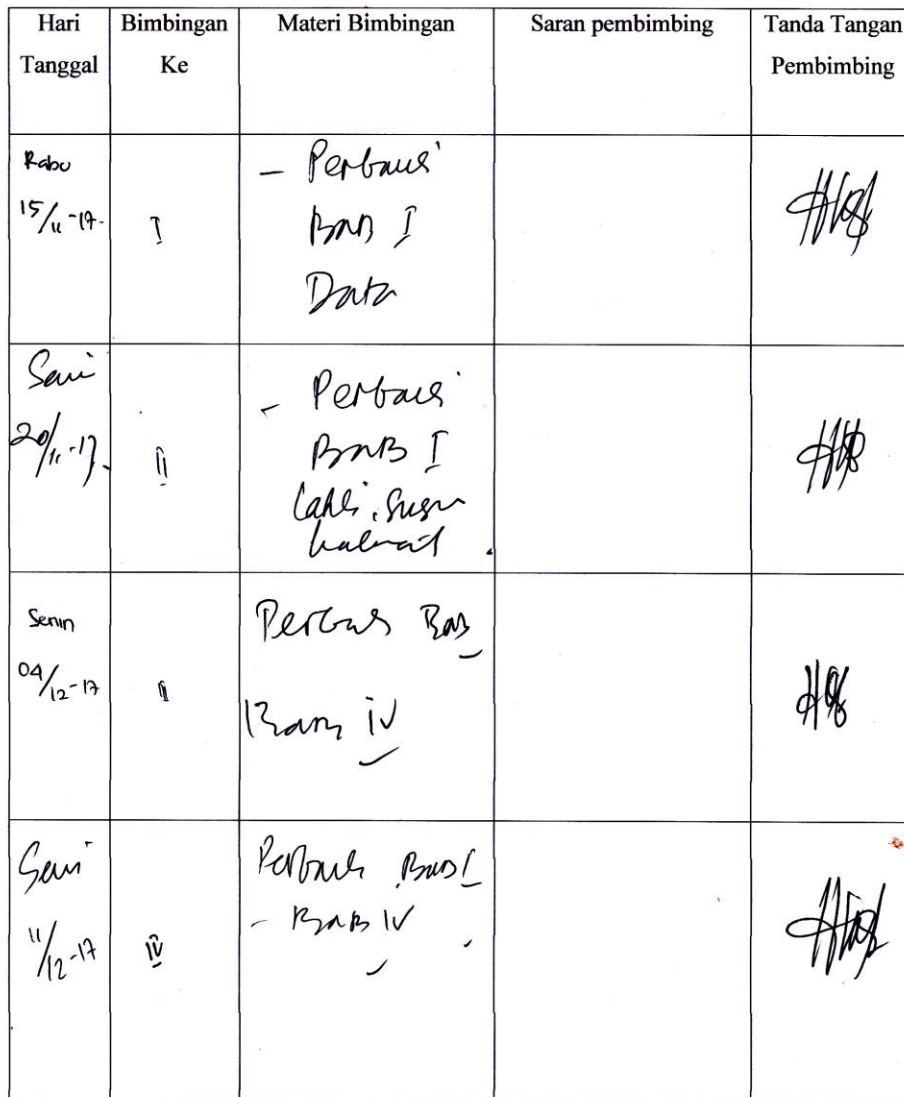 Hari Tanggal
Bimbingan Ke
Materi Bimbingan
Saran pembimbing
Tanda Tangan Pembimbing
Rabu
15/11-17-
I
- Perbaiki
BAB I
Data
Senin
20/11-17.
II
- Perbaiki
BAB I
kalimat.
Senin
04/12-17
Perbaiki Bab
Bab IV
Senin
11/12-17
IV
Perbaiki Bab I
- BAB IV